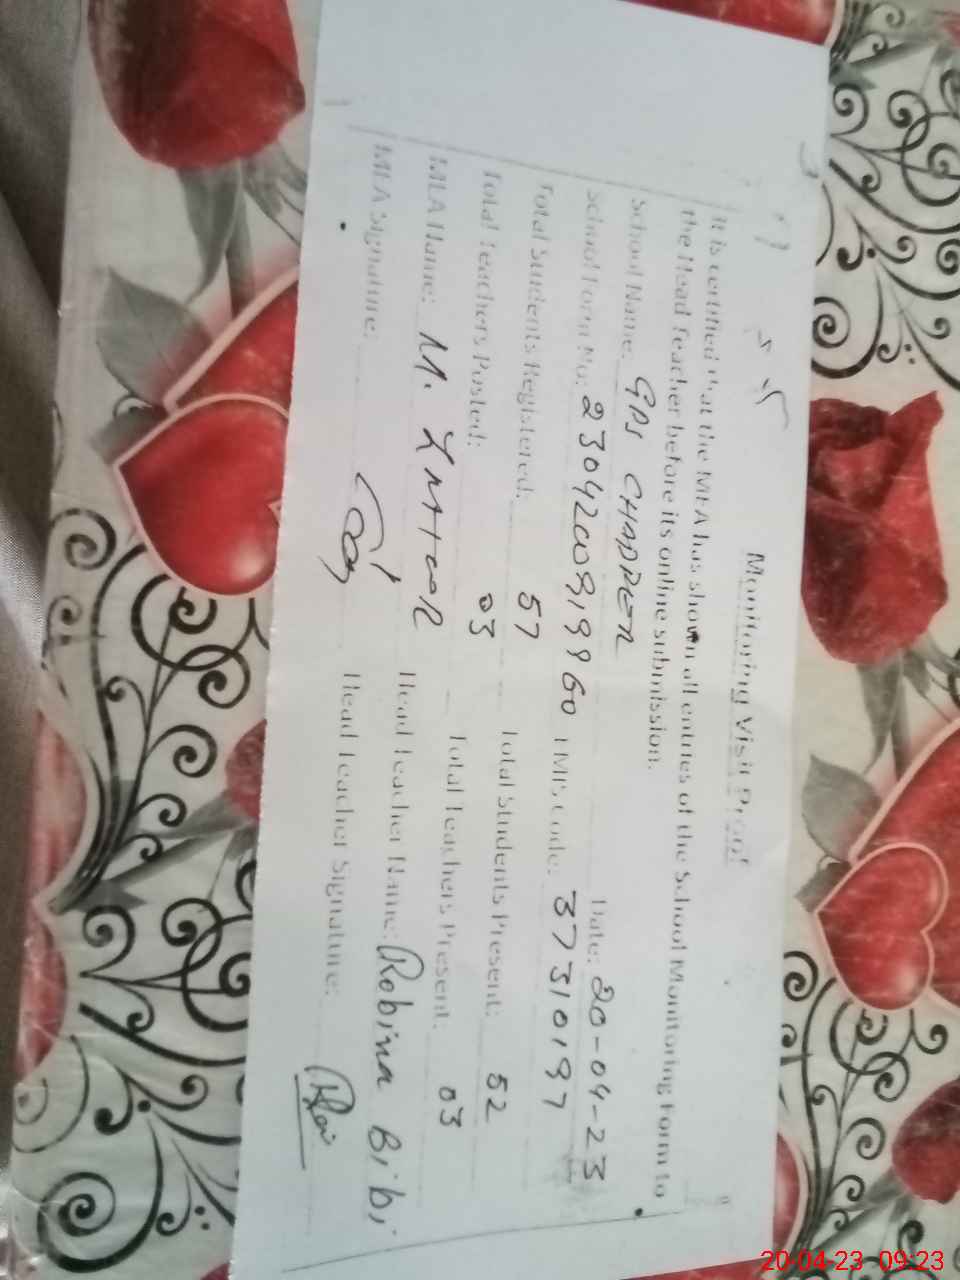 Monitoring Visit Proof
It is certified that the MEA has shown all entries of the School Monitoring Form to
the Head Teacher before its online submission.
School Name: GPS CHAPPER Date: 20-04-23
School Form No: EMIS Code: 37310197
Total Students Registered: 57 Total Students Present: 52
Total Teachers Posted: 03 Total Teachers Present: 03
MEA Name: M. Head Teacher Name: Robina Bibi
MEA Signature: Head Teacher Signature:
20-04-23 09:23